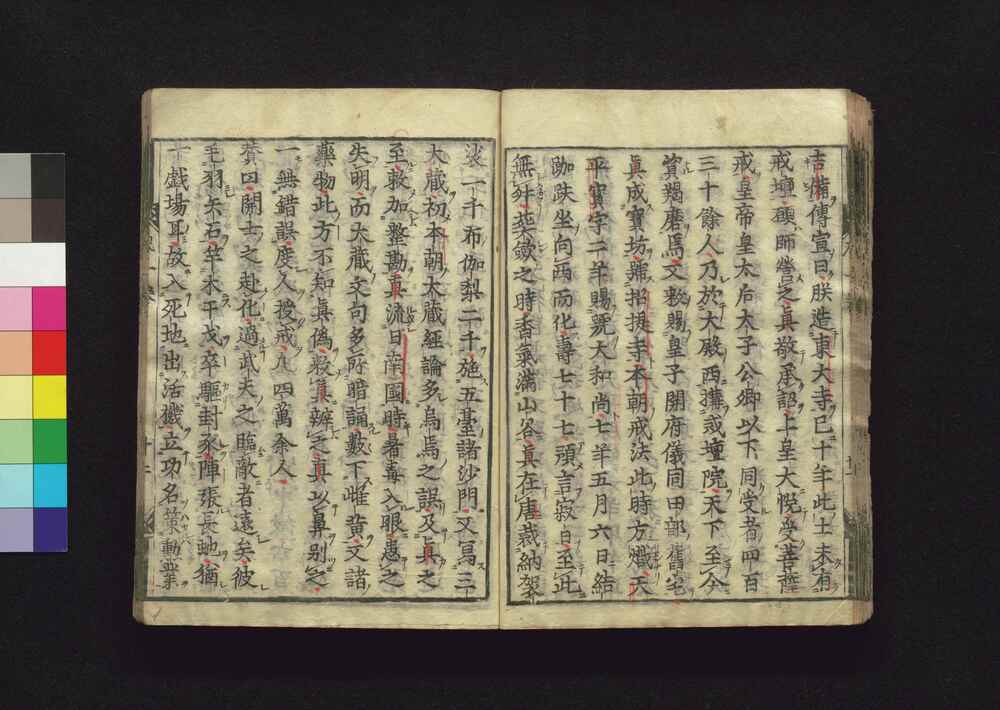 吉備傳宣曰朕造東大寺已十年此土未有
戒壇願師營之真敬承詔上皇大悅受菩薩
戒皇帝皇太后太子公卿以下同受者四百
三十餘人乃於大殿西搆戒壇院天下至今
資羯磨焉又敕賜皇子開府儀同田部舊宅
真成寶坊號招提寺本朝戒法此時方熾天
平寶字二年賜號大和尚七年五月六日結
跏趺坐向西而化壽七十七預言寂日至此
無舛葬歛之時香氣滿山谷真在唐裁納袈
裟一千布伽梨二千施五臺諸沙門又寫三
大藏初本朝大藏經論多烏焉之誤及真之
至敕加整勘真流日南國時暑毒入眼患之
失明而大藏文句多所暗誦數下雌黃又諸
藥物此方不知真偽敕真辨之真以鼻別之
一無錯誤度人授戒凡四萬余人
賛曰開士之赴化過武夫之臨敵者遠矣彼
毛羽矢石竿木干戈卒驅封豕陣張長虵猶
一戲場耳故入死地出活機立功名策勳業